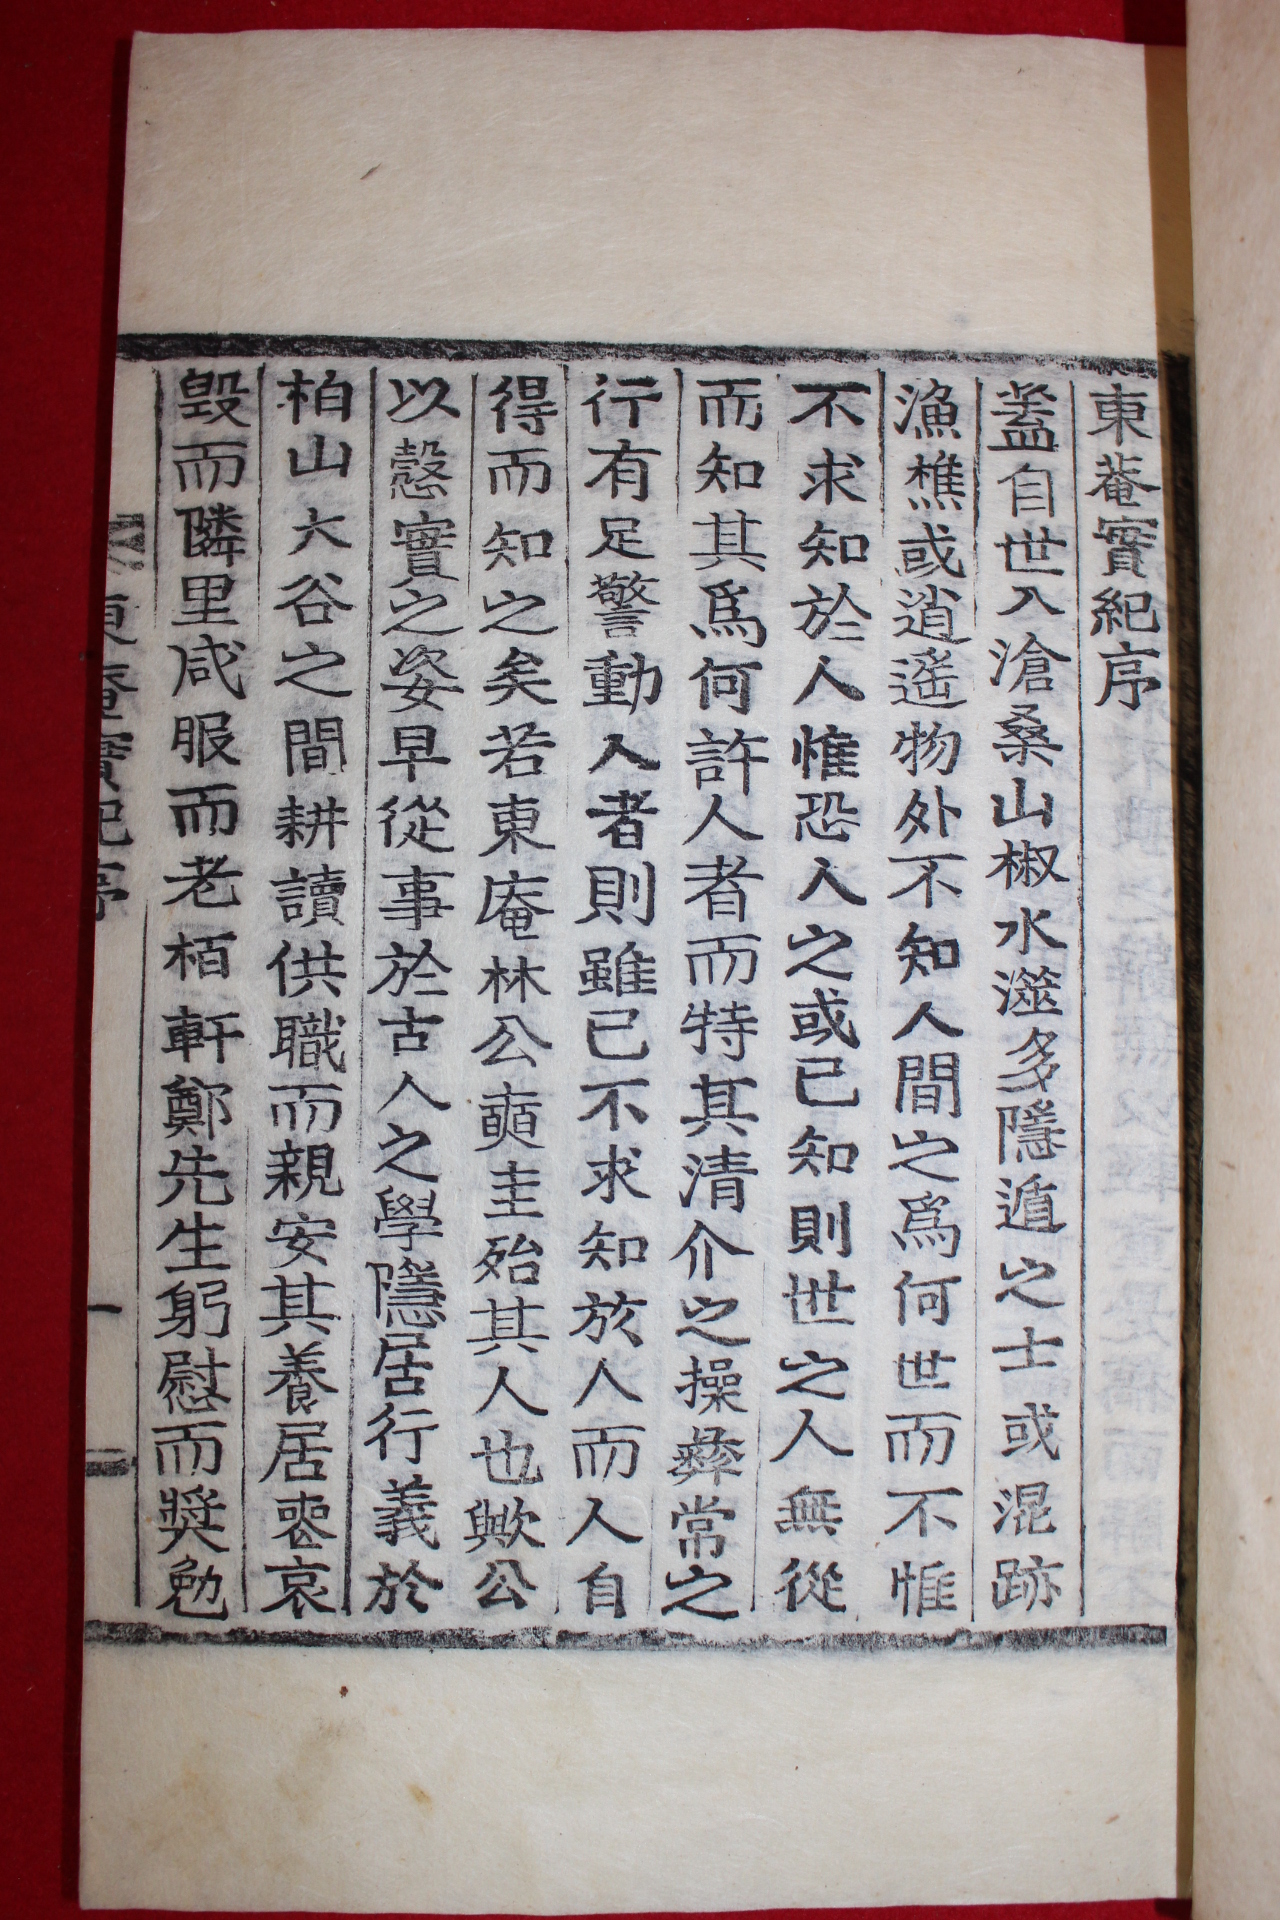 東菴實紀序
盖自世入滄桑山椒水澨多隱遁之士或混跡
漁樵或逍遙物外不知人間之爲何世而不惟
不求知於人惟恐人之或已知則世之人無從
而知其爲何許人者而特其清介之操彜常之
行有足警動人者則雖已不求知於人而人自
得而知之矣若東庵林公奭圭殆其人也歟公
以慤實之姿早從事於古人之學隱居行義於
柏山大谷之間耕讀供職而親安其養居喪哀
毁而隣里咸服而老栢軒鄭先生躬慰而奬勉
東菴實紀序
一